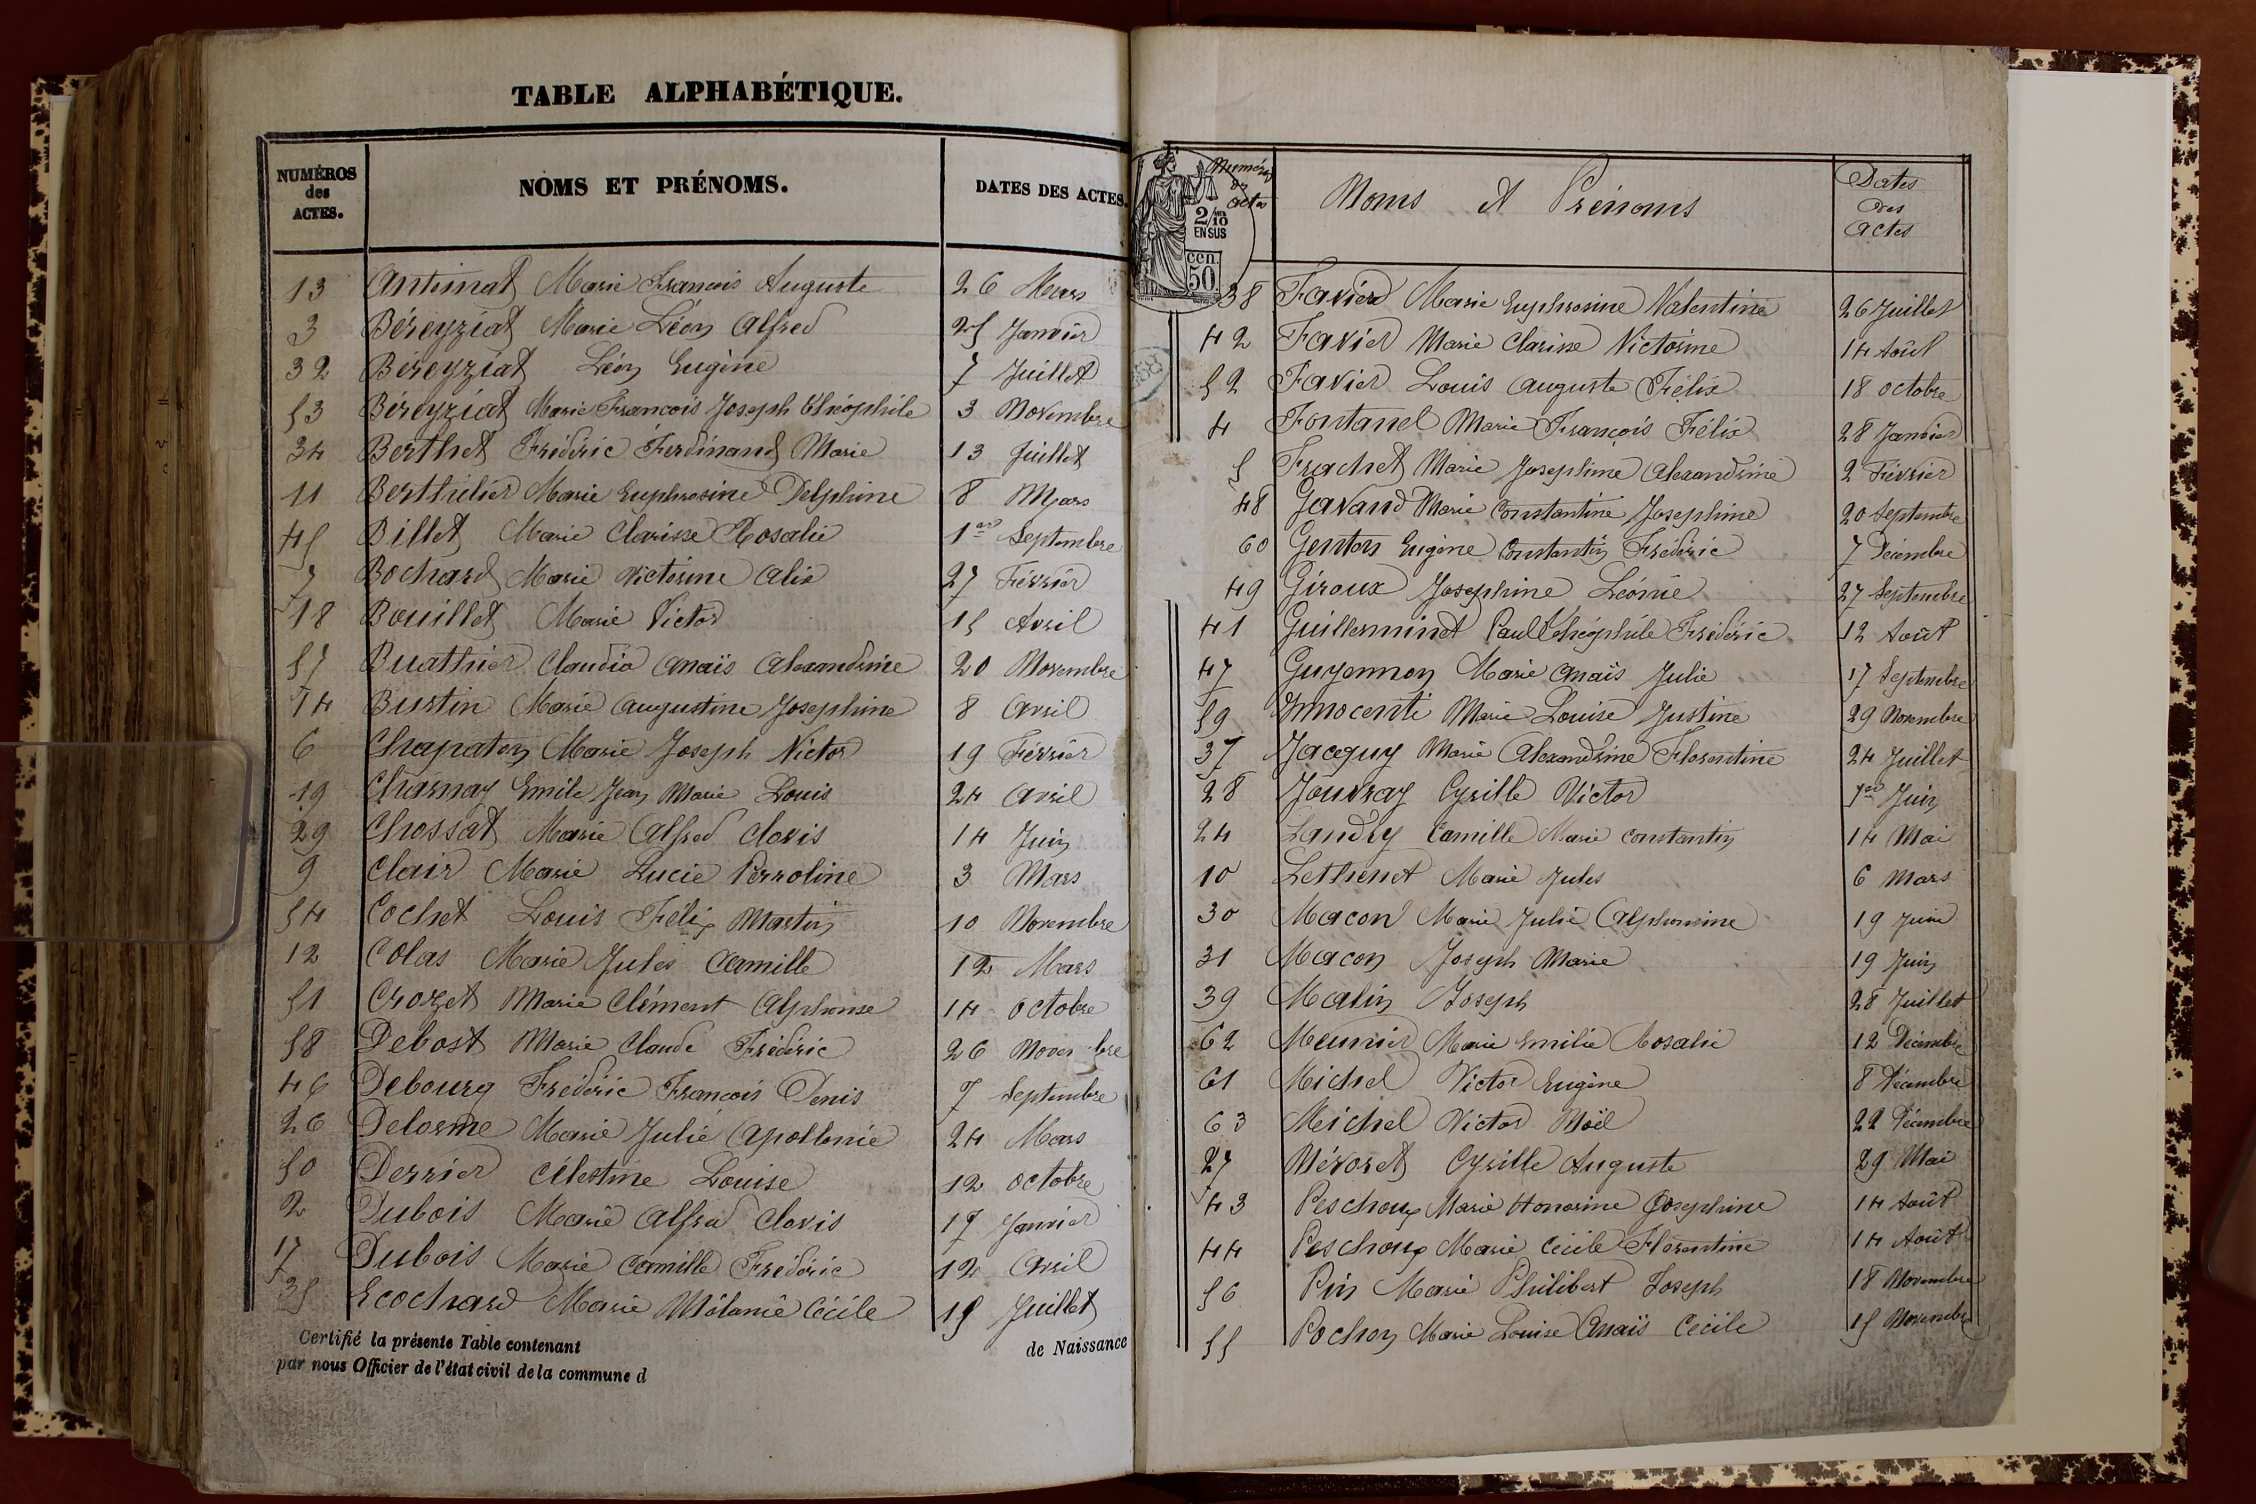 TABLE ALPHABÉTIQUE.
NUMÉROS des ACTES. NOMS ET PRÉNOMS. DATES DES ACTES.
13 Antimat Marie François Auguste 26 Mars
3 Béreyziat Marie Léon Alfred 25 Janvier
32 Béreyziat Léon Eugène 7 Juillet
53 Béreyziat Marie François Joseph Théophile 3 Novembre
34 Berthet Frédéric Ferdinand Marie 13 Juillet
11 Berthelier Marie Euphrosine Delphine 8 Mars
45 Billet Marie Clarisse Rosalie 1er Septembre
7 Bochard Marie Victorine Alix 27 Février
18 Bouillet Marie Victor 15 Avril
57 Buathier Claudia Anaïs Alexandrine 20 Novembre
14 Burtin Marie Augustine Josephine 8 Avril
6 Chapaton Marie Joseph Victor 19 Février
19 Charnay Emile Jean Marie Louis 24 Avril
29 Chossat Marie Alfred Clovis 14 Juin
9 Clair Marie Lucie Perroline 3 Mars
54 Cochet Louis Félix Martin 10 Novembre
12 Colas Marie Jules Camille 12 Mars
51 Crozet Marie Clément Alphonse 14 Octobre
58 Debost Marie Claude Frédéric 26 Novembre
46 Debourg Frédéric François Denis 7 Septembre
26 Delorme Marie Julie Apollonie 24 Mars
50 Perrier Célestine Louise 12 Octobre
2 Dubois Marie Alfred Clovis 17 Janvier
17 Dubois Marie Camille Frédéric 12 Avril
35 Ecochard Marie Mélanie Cécile 15 Juillet
Certifié la présente Table contenant de Naissance
par nous Officier de l'état civil de la commune d
2/10 EN SUS
50 cen.
Numéros des Actes Noms et Prénoms Dates des Actes
38 Favier Marie Euphrosine Valentine 26 Juillet
42 Favier Marie Clarisse Victorine 14 Août
52 Favier Louis Auguste Félix 18 Octobre
4 Fontanel Marie François Félix 28 Janvier
5 Frachet Marie Josephine Alexandrine 2 Février
48 Gavand Marie Constantine Josephine 20 Septembre
60 Genton Eugène Constantin Frédéric 7 Décembre
49 Giroux Josephine Léonie 27 Septembre
41 Guillerminet Paul Théophile Frédéric 12 Août
47 Guyennon Marie Anaïs Julie 17 Septembre
59 Innocenti Marie Louise Justine 29 Novembre
37 Jacquy Marie Alexandrine Florentine 24 Juillet
28 Jouvray Cyrille Victor 1er Juin
24 Landry Camille Marie Constantin 14 Mai
10 Lethenet Marie Jules 6 Mars
30 Macon Marie Julie Alphonsine 19 Juin
31 Macon Joseph Marie 19 Juin
39 Malin Joseph 28 Juillet
62 Meunier Marie Emilie Rosalie 12 Décembre
61 Michel Victor Eugène 8 Décembre
63 Michel Victor Noël 22 Décembre
27 Névoret Cyrille Auguste 29 Mai
43 Peschoux Marie Honorine Josephine 14 Août
44 Peschoux Marie Cécile Florentine 14 Août
56 Pin Marie Philibert Joseph 18 Novembre
55 Pochon Marie Louise Anaïs Cécile 15 Novembre